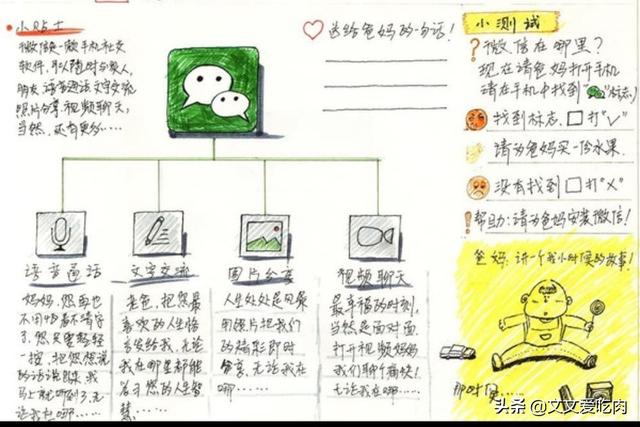 小贴士
微信是一款手机社交
软件,可以随时与家人,
朋友,语音通话文字交流
照片分享视频聊天,
当然,还有更多……
送给爸妈的一句话!
小测试
?微信在哪里?
现在请爸妈打开手机
请在手机中找到"标志)
找到标志,□打"√"
请为爸妈买一份水果.
没有找到□打"×"
帮助:请为爸妈安装微信!
语音通话
妈妈,您再也
不用怕看不清字
了,您只要轻轻
一按,把您想说
的话说出来,我
马上就听到了,无
论我在哪……
文字交流
老爸,把您最
喜欢的人生格
言发给我,无论
我在哪里都能
学习您的人生智
慧……
图片分享
人生处处是风景
用照片把我们
的精彩即时
分享,无论我在
哪……
视频聊天
最幸福的时刻,
当然是面对面,
打开视频妈妈
我们聊个痛快!
无论我在哪……
爸妈:讲一个我小时候的故事!
那时候……
头条 @文文爱吃肉